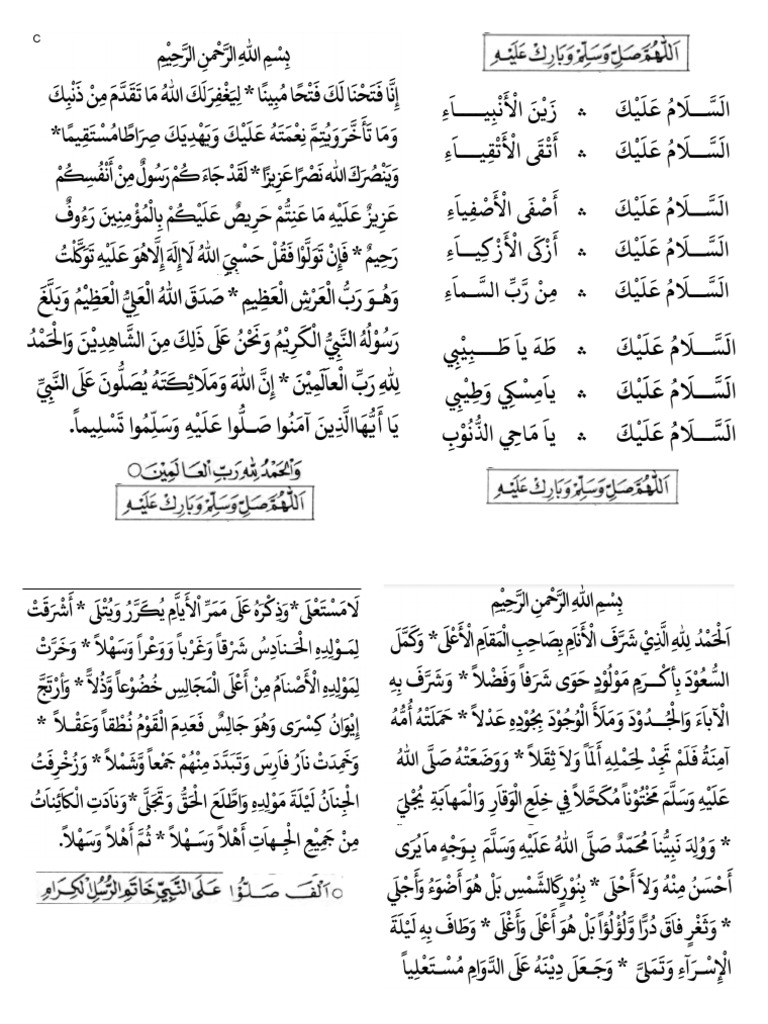 c
اَللّٰهُمَّ صَلِّ وَسَلِّمْ وَبَارِكْ عَلَيْهِ
اَلسَّــلَامُ عَلَيْكَ ۞ زَيْنَ الْأَنْبِيَــــاءِ
اَلسَّــلَامُ عَلَيْكَ ۞ أَتْقَى الْأَتْقِيَــاءِ
اَلسَّــلَامُ عَلَيْكَ ۞ أَصْفَى الْأَصْفِياَءِ
اَلسَّــلَامُ عَلَيْكَ ۞ أَزْكَى الْأَزْكِيَــاءِ
اَلسَّــلَامُ عَلَيْكَ ۞ مِنْ رَّبِّ السَّـماَءِ
اَلسَّــلَامُ عَلَيْكَ ۞ طَهَ ياَ طَـــبِيْبِي
اَلسَّــلَامُ عَلَيْكَ ۞ ياَمِسْكِي وَطِيْبِي
اَلسَّــلَامُ عَلَيْكَ ۞ ياَ مَاحِي الذُّنُوْبِ
اَللّٰهُمَّ صَلِّ وَسَلِّمْ وَبَارِكْ عَلَيْهِ
بِسْمِ اللهِ الرَّحْمٰنِ الرَّحِيْمِ
إِنَّا فَتَحْنَا لَكَ فَتْحًا مُبِينًا * لِيَغْفِرَ لَكَ اللهُ مَا تَقَدَّمَ مِنْ ذَنْبِكَ
وَمَا تَأَخَّرَ وَيُتِمَّ نِعْمَتَهُ عَلَيْكَ وَيَهْدِيَكَ صِرَاطًا مُسْتَقِيمًا *
وَيَنْصُرَكَ الله نَصْرًا عَزِيْزًا * لَقَدْ جَاءَكُمْ رَسُولٌ مِنْ أَنْفُسِكُمْ
عَزِيزٌ عَلَيْهِ مَا عَنِتُّمْ حَرِيصٌ عَلَيْكُمْ بِالْمُؤْمِنِينَ رَءُوفٌ
رَحِيمٌ * فَإِنْ تَوَلَّوْا فَقُلْ حَسْبِيَ اللهُ لَا إِلَهَ إِلَّا هُوَ عَلَيْهِ تَوَكَّلْتُ
وَهُـوَ رَبُّ الْعَرْشِ الْعَظِيمِ * صَدَقَ اللهُ الْعَلِيُّ الْعَظِيْمُ وَبَلَّغَ
رَسُوْلُهُ النَّبِيُّ الْكَرِيْمُ وَنَحْنُ عَلَى ذَلِكَ مِنَ الشَّاهِدِيْنَ وَالْحَمْدُ
لِلهِ رَبِّ الْعَالَمِيْنَ * إِنَّ اللهَ وَمَلَائِكَتَهُ يُصَلُّونَ عَلَى النَّبِيِّ
يَا أَيُّهَا الَّذِينَ آمَنُوا صَلُّوا عَلَيْهِ وَسَلِّمُوا تَسْلِيماً.
وَالْحَمْدُ لِلهِ رَبِّ الْعَالَمِيْنَ ○
اَللّٰهُمَّ صَلِّ وَسَلِّمْ وَبَارِكْ عَلَيْهِ
بِسْمِ اللهِ الرَّحْمٰنِ الرَّحِيْمِ
اَلْحَمْدُ لِلهِ الَّذِيْ شَرَّفَ الْأَنَامَ بِصَاحِبِ الْمَقَامِ الْأَعْلَى * وَكَمَّلَ
السُّعُوْدَ بِأَكْـرَمِ مَوْلُوْدٍ حَوَى شَرَفاً وَفَضْلاً * وَشَرَّفَ بِهِ
الْآبَاءَ وَالْجُـدُوْدَ وَمَلَأَ الْوُجُوْدَ بِجُوْدِهِ عَدْلاً * حَمَلَتْهُ أُمُّهُ
آمِنَةُ فَلَمْ تَجِدْ لِحَمْلِهِ أَلَماً وَلاَ ثِقَلاً * وَوَضَعَتْهُ صَلَّى اللهُ
عَلَيْهِ وَسَلَّمَ مَخْتُوْناً مُكَحَّلاً فِي خِلَعِ الْوَقَارِ وَالْمَهَابَةِ يُجْلَى
* وَوُلِدَ نَبِيُّناَ مُحَمَّدٌ صَلَّى اللهُ عَلَيْهِ وَسَلَّمَ بِـوَجْهٍ ماَ يُرَى
أَحْسَنُ مِنْهُ وَلاَ أَحْلَى * بِنُوْرٍ كَالشَّمْسِ بَلْ هُوَ أَضْوَءُ وَأَجْلَى
* وَثَغْرٍ فاَقَ دُرًّا وَلُؤْلُؤاً بَلْ هُوَ أَعْلَى وَأَغْلَى * وَطَافَ بِهِ لَيْلَةَ
الْإِسْـرَآءِ وَتَمَلَّى * وَجَـعَلَ دِيْنَهُ عَلَى الدَّوَامِ مُسْـتَعْلِياً
لَا مُسْتَعْلَى * وَذِكْرَهُ عَلَى مَمَرِّ الْأَيَّامِ يُكَرَّرُ وَيُتْلَى * أَشْرَقَتْ
لِمَـوْلِدِهِ الْحَنَادِسُ شَرْقاً وَغَرْباً وَوَعْراً وَسَهْلاً * وَخَرَّتْ
لِمَوْلِدِهِ الْأَصْنَامُ مِنْ أَعْلَى الْمَجَالِسِ خُضُوْعاً وَذُلاًّ * وَاَرْتَجَّ
إِيْوَانُ كِسْرَى وَهُوَ جَالِسٌ فَعَدِمَ الْقَوْمُ نُطْقاً وَعَقْـلاً *
وَخَمِدَتْ نَارُ فاَرِسَ وَتَبَدَّدَ مِنْهُمْ جَمْعاً وَشَمْلاً * وَزُخْرِفَتُ
الْجِنَانُ لَيْلَةَ مَوْلِدِهِ وَاطَّلَعَ الْحَقُّ وَتَجَلَّى * وَنَادَتِ الْكَائِنَاتُ
مِنْ جَمِيْعِ الْجِـهَاتِ أَهْلاً وَسَـهْلاً * ثُمَّ أَهْلاً وَسَهْلاً.
○ اَلْفَ صَـلُّوْا عَلَى النَّبِيِّ خَاتِمِ الرُّسُلِ لْكِرَامِ